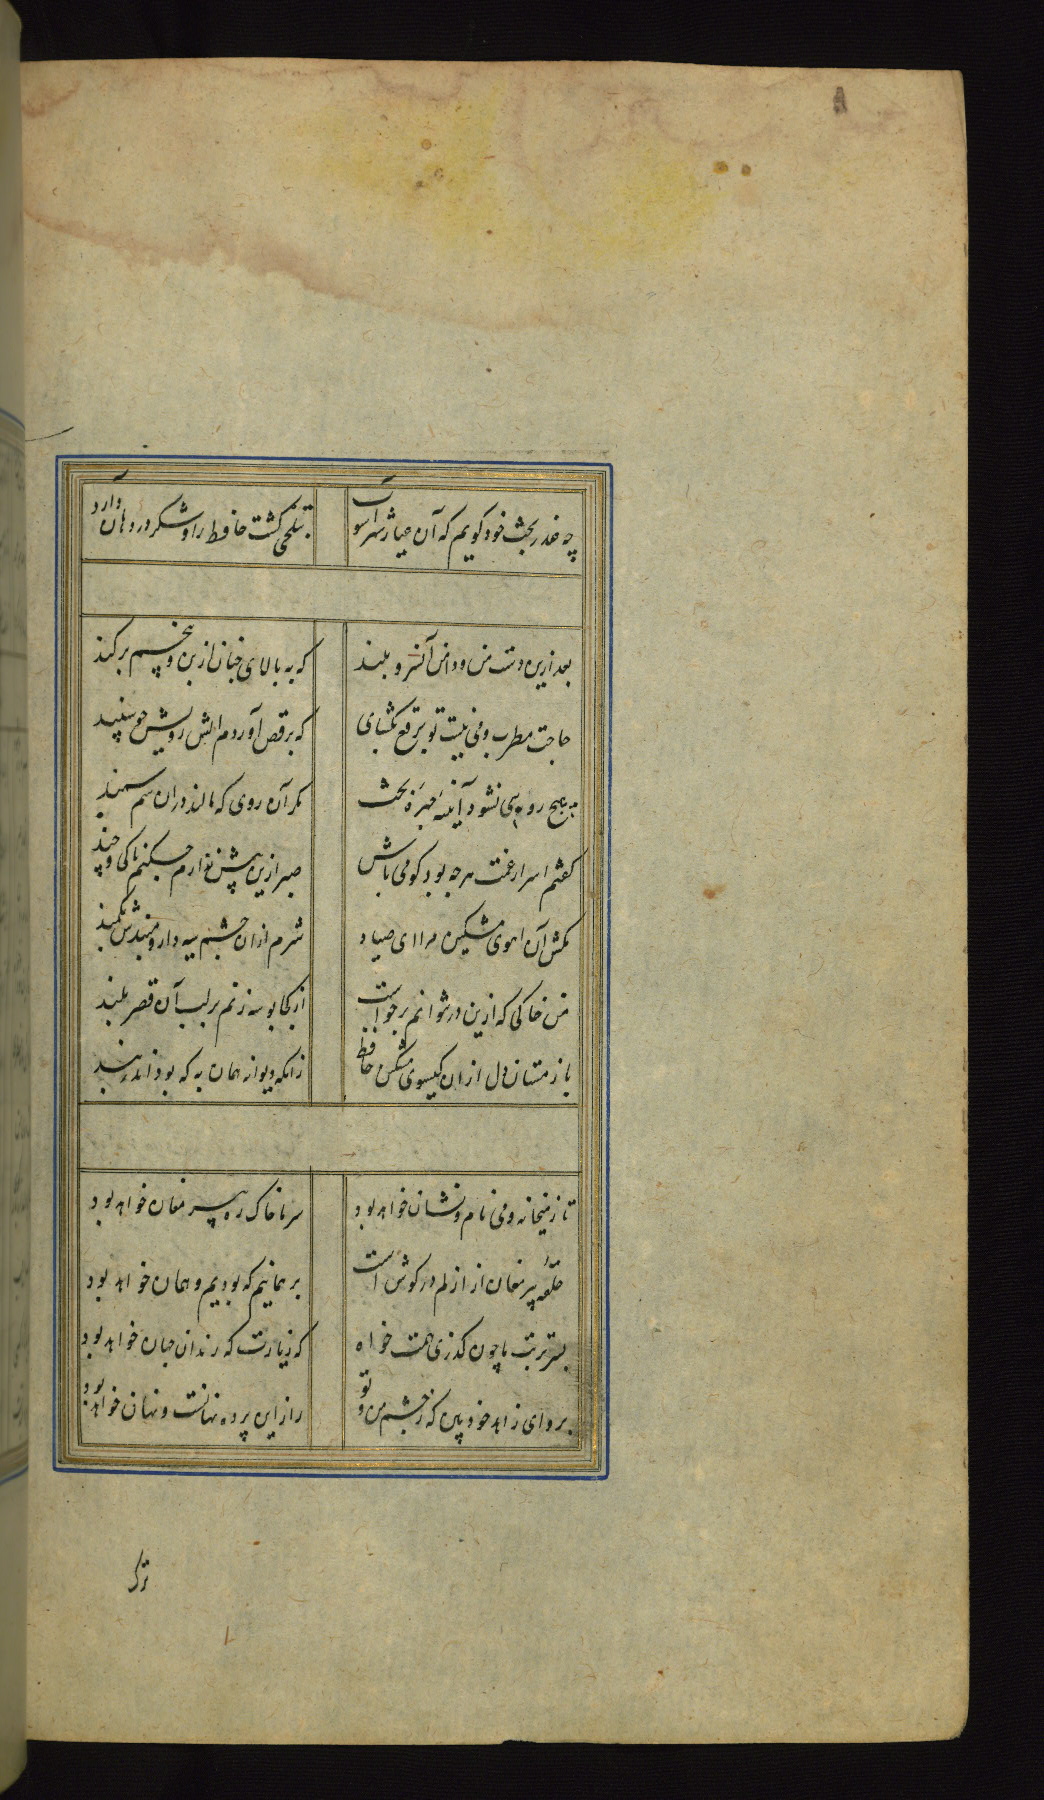 چه عذر بخت خود گویم که آن عیار شهرآشوب
بتلخی کشت حافظ را و شکر در دهان دارد
بعد ازین دست من و دامن آن سرو بلند
که به بالای چنان از بن و بیخم برکند
حاجت مطرب و می نیست تو برقع بگشای
که برقص آوردم آتش رویش چو سپند
هیچ رویی نشود آینه حجره بخت
مگر آن روی که مالند دران سم سمند
گفتم اسرار غمت هرچه بود گو می باش
صبر ازین بیش ندارم چکنم تا کی و چند
مکش آن آهوی مشکین مرا ای صیاد
شرم ازان چشم سیه دار و مبندش بکمند
من خاکی که ازین در نتوانم برخواست
از کجا بوسه زنم بر لب آن قصر بلند
باز مستان دل ازان گیسوی مشکین حافظ
زانکه دیوانه همان به که بود اندر بند
تا ز میخانه و می نام و نشان خواهد بود
سر ما خاک ره پیر مغان خواهد بود
حلقه پیر مغان از ازلم در گوش است
بر همانیم که بودیم و همان خواهد بود
بر سر تربت ما چون گذری همت خواه
که زیارت که رندان جهان خواهد بود
برو ای زاهد خودبین که ز چشم من و تو
راز این پرده نهانست و نهان خواهد بود
ترک